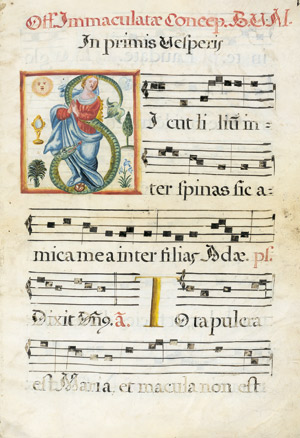 Off. Immaculatæ Concep. B.V.M.
In primis Vesperis
SIcut li liũ in
ter spinas sic a-
mica mea inter filias Adæ. ps.
Dixit Dñ9. ã. TOta pulcra
est Maria, et macula non est